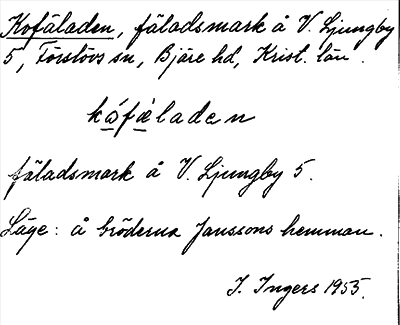 Kofäladen, fäladsmark å V. Ljungby
5, Förslövs sn, Bjäre hd, Krist. län.
kófæ̀laden
fäladsmark å V. Ljungby 5.
Läge: å bröderna Janssons hemman.
I. Ingers 1955.